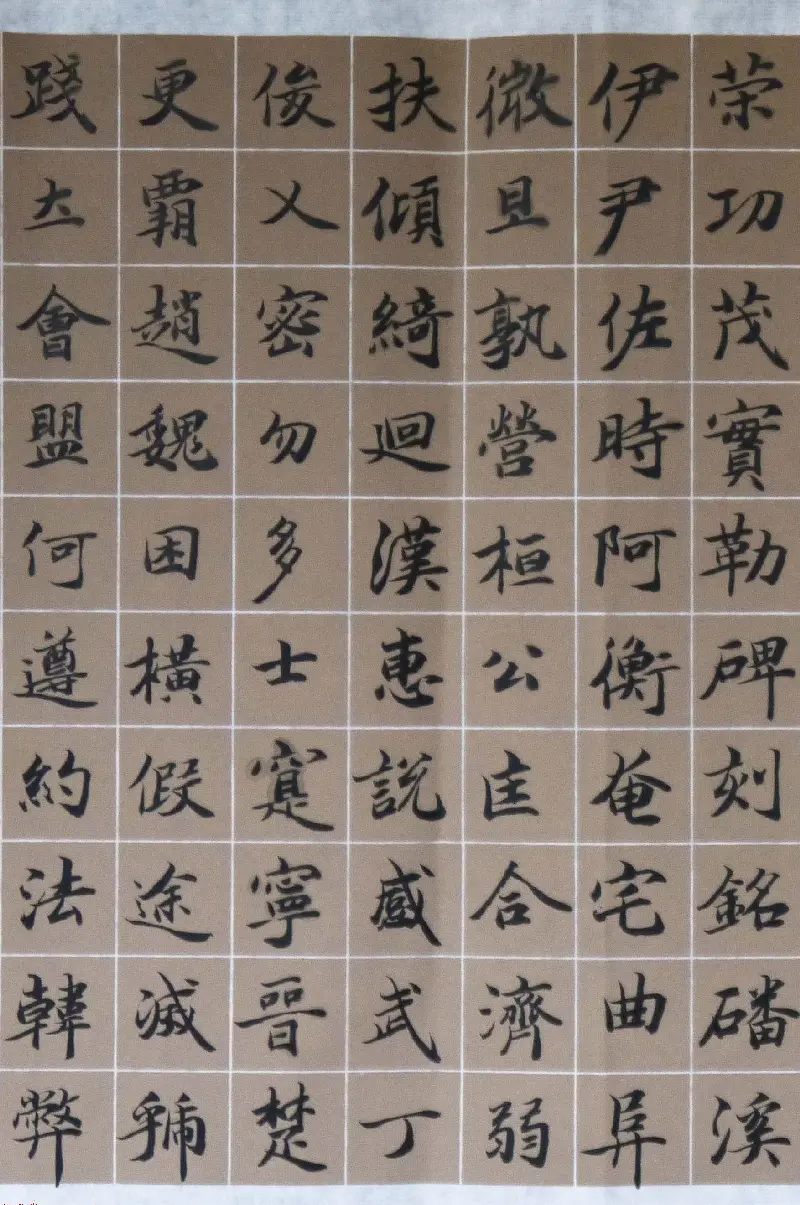 荣功茂實勒碑刻銘磻溪
伊尹佐時阿衡奄宅曲阜
微旦孰營桓公匡合濟弱
扶傾綺迴漢惠説感武丁
俊乂密勿多士寔寧晉楚
更霸趙魏困橫假途滅虢
踐土會盟何遵約法韓弊